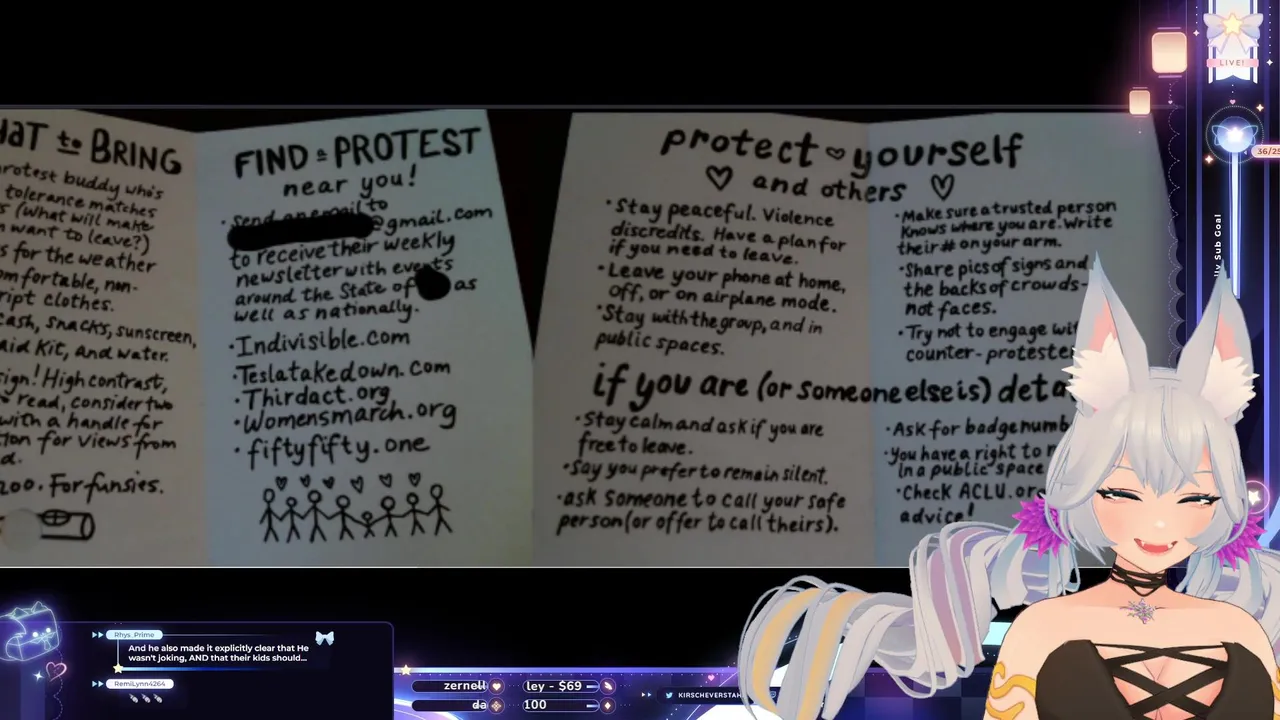 what to BRING
protest buddy who's
tolerance matches
(what will make
want to leave?)
for the weather
comfortable, non-
script clothes.
cash, snacks, sunscreen,
aid kit, and water.
sign! High contrast,
read, consider two
with a handle for
for views from
200. For funsies.
FIND a PROTEST
near you!
• Send an email to
@gmail.com
to receive their weekly
newsletter with events
around the State of as
well as nationally.
• Indivisible.com
• Teslatakedown.com
• Thirdact.org
• Womensmarch.org
• fiftyfifty.one
protect yourself
and others
• Stay peaceful. Violence
discredits. Have a plan for
if you need to leave.
• Leave your phone at home,
off, or on airplane mode.
• Stay with the group, and in
public spaces.
• Make sure a trusted person
knows where you are. Write
their # on your arm.
• Share pics of signs and
the backs of crowds-
not faces.
• Try not to engage wit
counter-proteste
if you are (or someone else is) deta
• Stay calm and ask if you are
free to leave.
• Say you prefer to remain silent.
• ask someone to call your safe
person (or offer to call theirs).
• Ask for badge numb
• You have a right to r
in a public space
• Check ACLU.or
advice!
LIVE!
36/25
ly Sub Goal
Rhys_Prime
And he also made it explicitly clear that He
wasn't joking, AND that their kids should...
RemiLynn4264
zernell
ley - $69
da
100
KIRSCHEVERSTAH